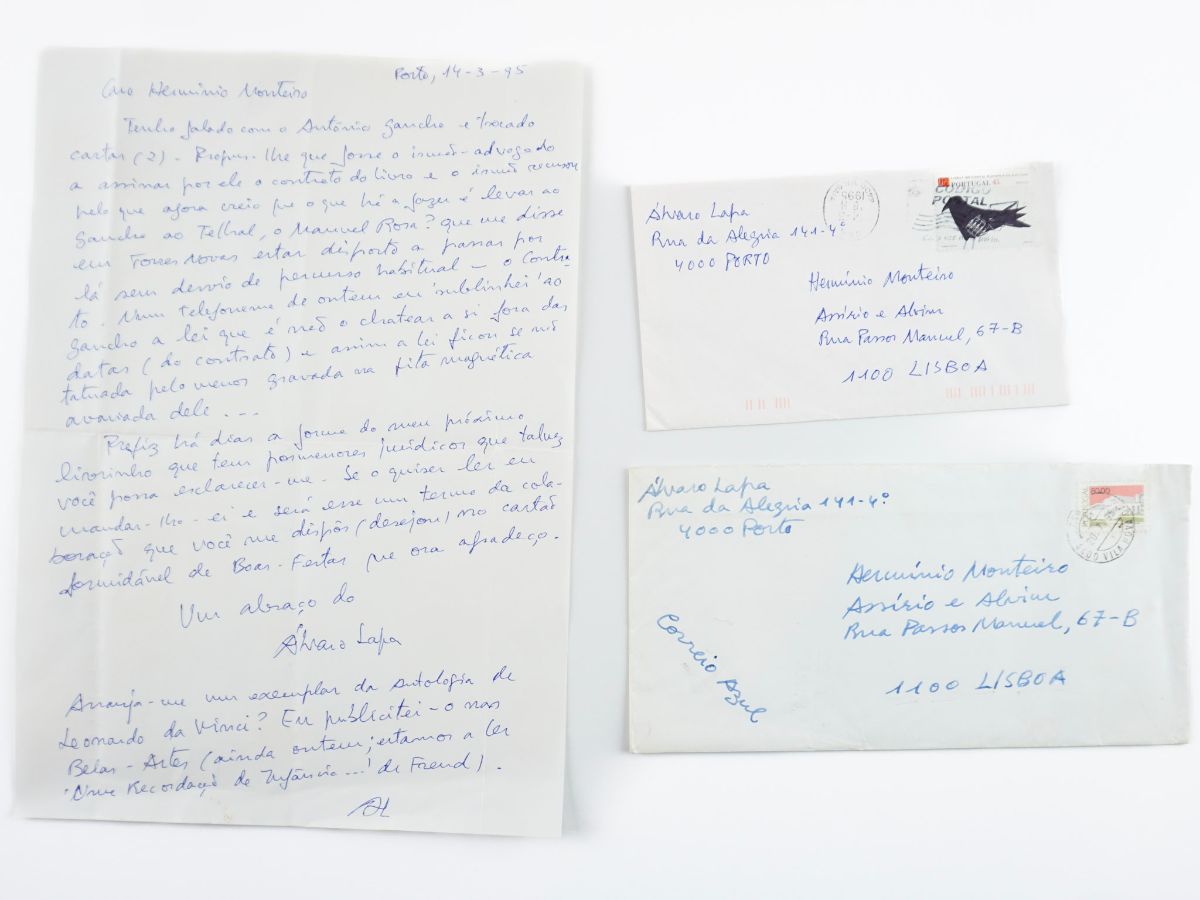 Porto, 14-3-95
Caro Hermínio Monteiro
Tenho falado com o António Gancho e trocado
cartas (2). Propus-lhe que fosse o irmão-advogado
a assinar por ele o contrato do livro e o irmão recusou
pelo que agora creio que o que há a fazer é levar ao
Gancho ao Telhal, o Manuel Rosa? que me disse
em Torres Novas estar disposto a passar por
lá sem desvio de percurso habitual — o contra-
to. Num telefonema de ontem eu 'sublinhei' ao
Gancho a lei que é não o chatear a si fora das
datas (do contrato) e assim a lei ficou se não
tatuada pelo menos gravada na fita magnética
avariada dele ...
Prefiz há dias a forma do meu próximo
livrorinho que tem pormenores jurídicos que talvez
você possa esclarecer-me. Se o quiser ler eu
mandar-lho-ei e será esse um termo da cola-
boração que você me dispôs (desejou) no cartão
formidável de Boas-Festas que ora agradeço.
Um abraço do
Álvaro Lapa
Arranja-me um exemplar da Antologia de
Leonardo da Vinci? Eu publicitei-o nas
Belas-Artes (ainda ontem; estamos a ler
'Uma Recordação de Infância...' de Freud).
AL
Álvaro Lapa
Rua da Alegria 141-4º
4000 PORTO
PORTUGAL 45
CÓDIGO
POSTAL
1995
Hermínio Monteiro
Assírio e Alvim
Rua Passos Manuel, 67-B
1100 LISBOA
Álvaro Lapa
Rua da Alegria 141-4º
4000 Porto
Hermínio Monteiro
Assírio e Alvim
Rua Passos Manuel, 67-B
1100 LISBOA
Correio Azul